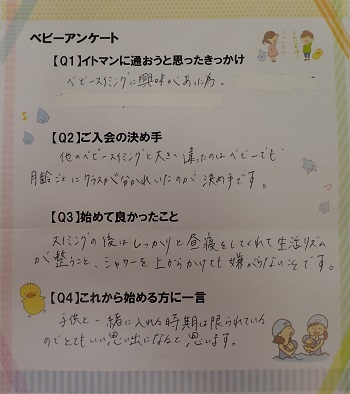 ベビーアンケート
【Q1】イトマンに通おうと思ったきっかけ
ベビースイミングに興味があった為。
【Q2】ご入会の決め手
他のベビースイミングと大きく違ったのはベビーでも
月齢ごとにクラスが分かれいたのが決め手です。
【Q3】始めて良かったこと
スイミングの後はしっかりと昼寝をしてくれて生活リズム
が整うこと、シャワーを上からかけても嫌がらないことです。
【Q4】これから始める方に一言
子供と一緒に入れる時期は限られている
のでとてもいい思い出になると思います。